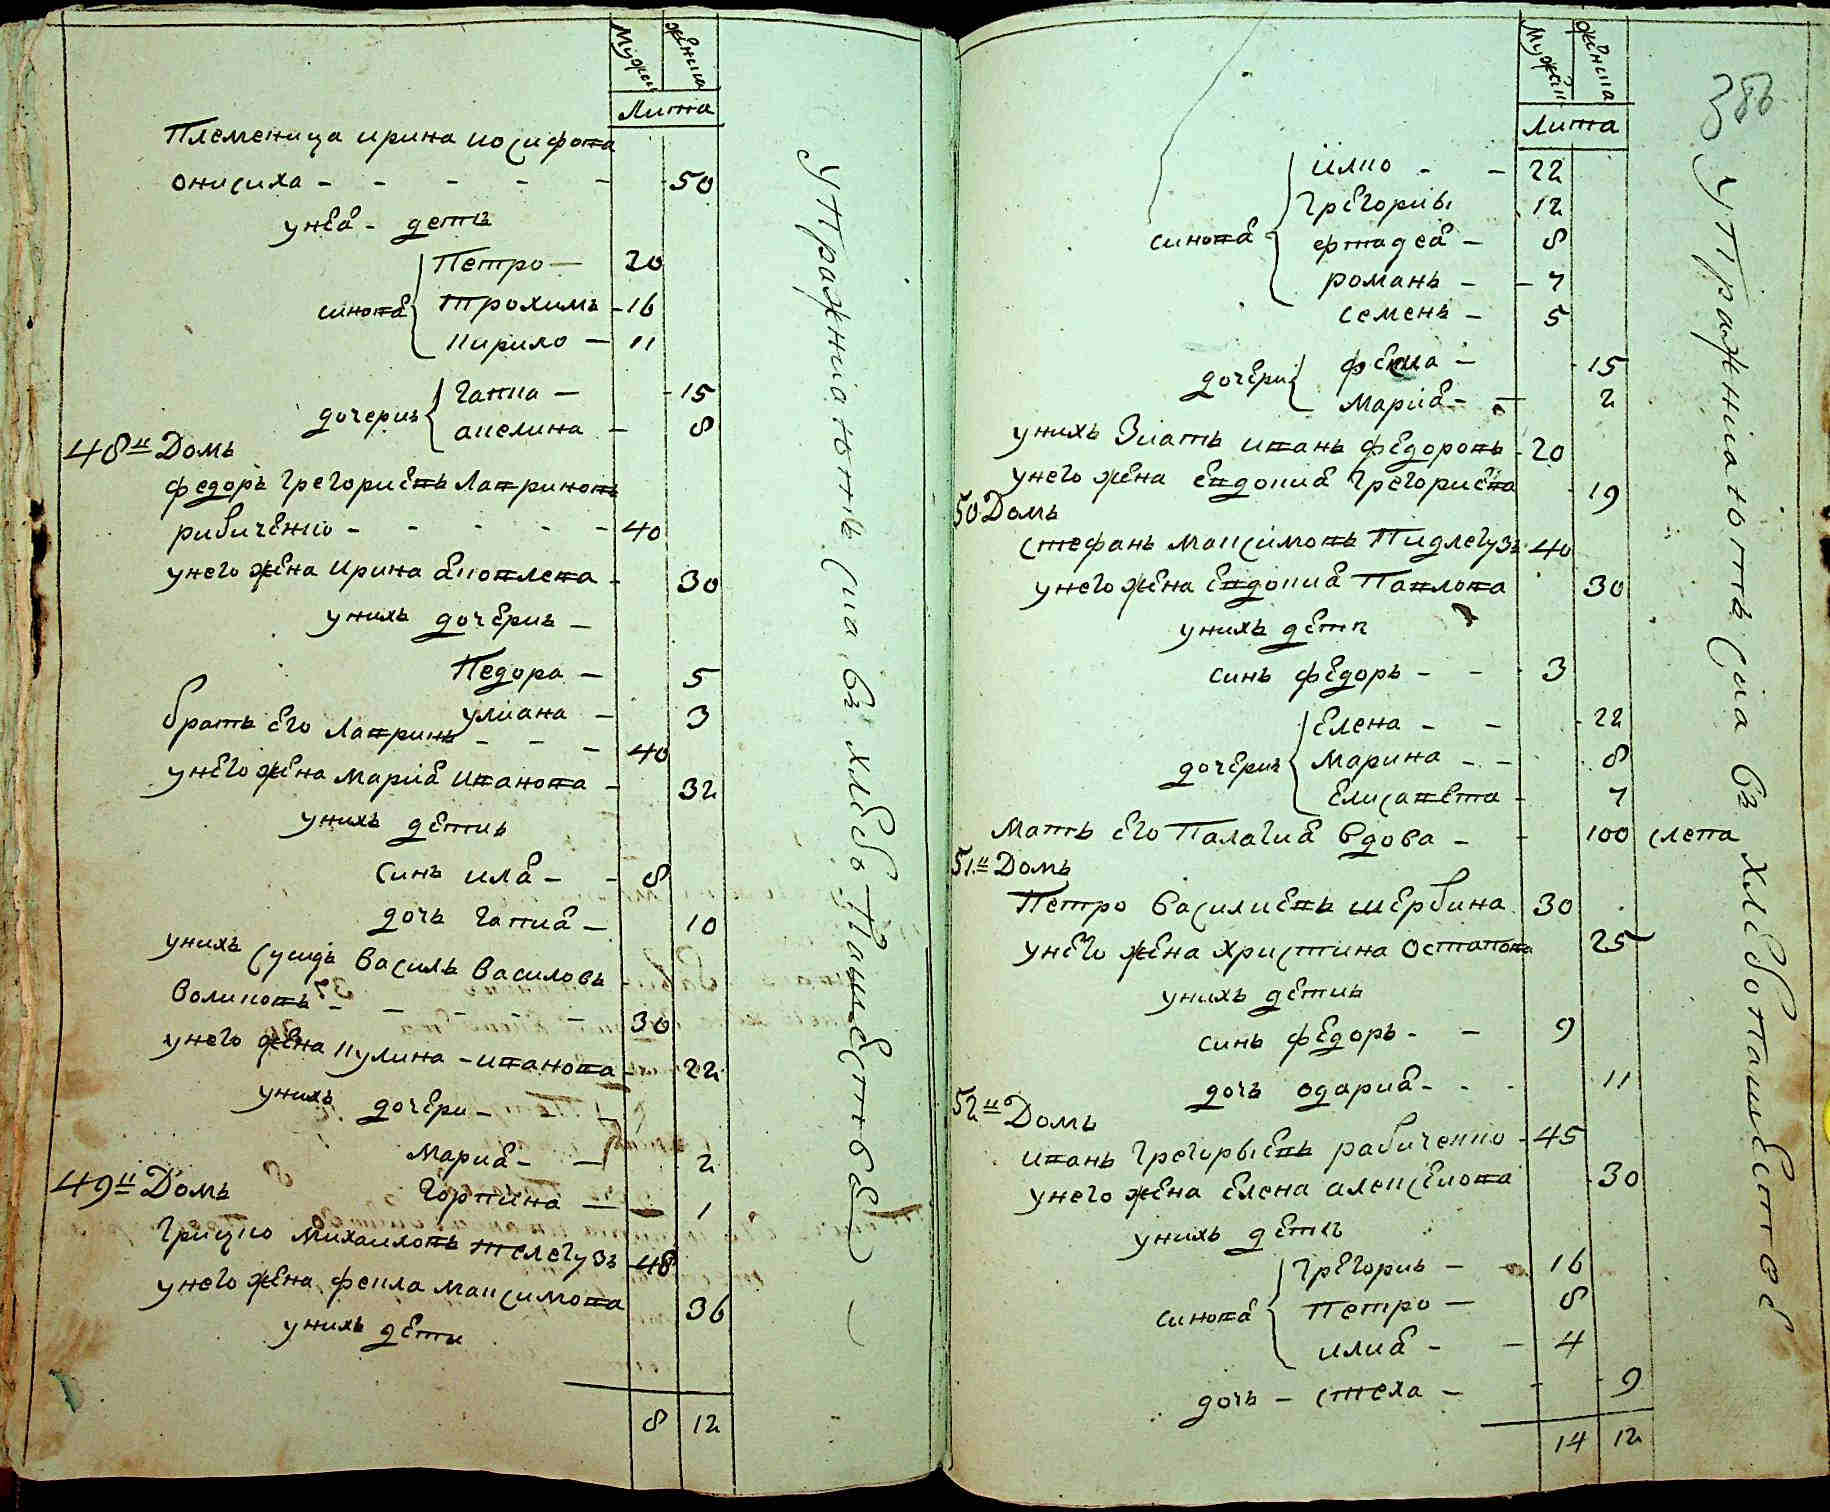 Мужи женша
Лита
Племеница ирина иосифова
онисиха - - - - - 50
унеѣ - детѣ
Петро - 20
синовѣ Трохимъ - 16
Кирило - 11
Ганна - 15
дочериъ акелина - 8
48й Домъ
федоръ Грегориевъ Лавриновъ
рибиченко - - - - - 40
унего жена ирина Яковлева - 30
унихъ дочериъ -
Педора - 5
улиана - 3
братъ его Лавринъ - - - 40
унего жена мариѣ иванова - 32
унихъ детиъ
синъ илѣ - - 8
дочъ гапиѣ - 10
унихъ сусидъ василь василовъ
воликовъ - - - - - 30
унего жена кулина - иванова - 22
унихъ дочери -
мариѣ - - 2
Горпина - 1
49й Домъ
Грицко михаиловъ телегузъ 48
унего жена фекла максимова 36
унихъ дети
8 12
упражниаютъсиа въ хлебопашествѣ
Мужи женша
Лита
386
илко - - 22
Грегориы 12
синовѣ фтадеѣ - 8
романъ - - 7
семенъ - 5
дочери феска - 15
мариѣ - - 2
унихъ зиатъ иванъ федоровъ - 20
унего жена Евдокиѣ Грегориева 19
50 Домъ
стефанъ максимовъ Пидлегузъ 40
унего жена Евдокиѣ Павлова 30
унихъ дети
синъ федоръ - - 3
Елена - - 22
дочериъ марина - - 8
Елисавета - 7
матъ его Палагиѣ вдова - - 100 слепа
51й Домъ
Петро василиевъ шербина 30
унего жена христина остапова 25
унихъ детиъ
синъ федоръ - - 9
дочъ одариѣ - - 11
52й Домъ
иванъ Грегорыевъ рабиченко - 45
унего жена елена алексеюва 30
унихъ дети
Грегориъ - - 16
синовѣ Петро - 8
илиѣ - - 4
дочъ - стеха - - 9
14 12
упражниаютъсиа въ хлебопашествѣ